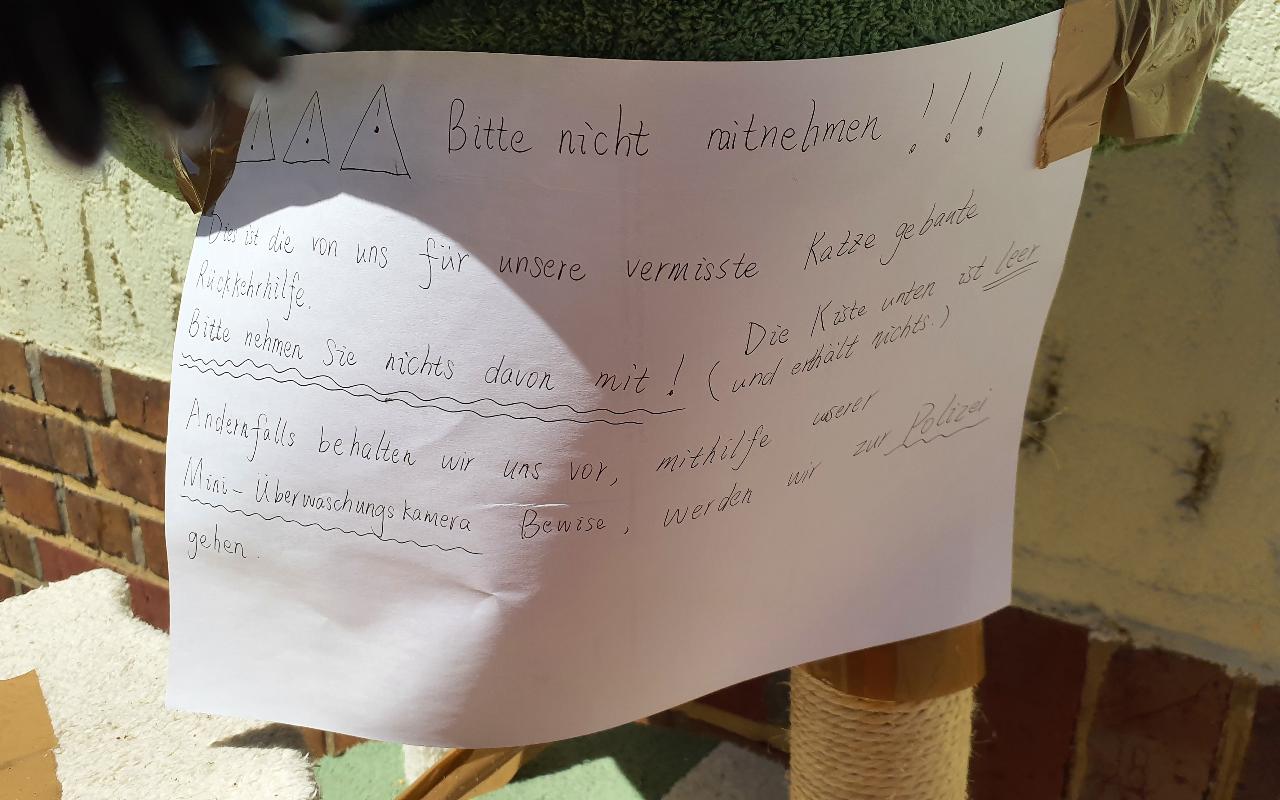 Bitte nicht mitnehmen !!!
Dies ist die von uns für unsere vermisste Katze gebaute
Rückkehrhilfe.
Bitte nehmen Sie nichts davon mit! (Die Kiste unten ist leer
und enthält nichts.)
Andernfalls behalten wir uns vor, mithilfe unserer
Mini-Überwaschungskamera Bewise, werden wir zur Polizei
gehen.